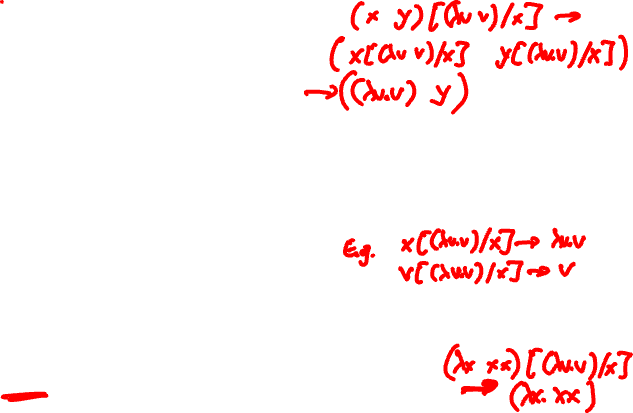 (x y)[(λv v)/x] →
(x[(λv v)/x] y[(λv.v)/x])
→((λv.v) y)
E.g. x[(λv.v)/x] → λv.v
v[(λv.v)/x] → v
(λx xx)[(λv.v)/x]
→ (λx. xx)